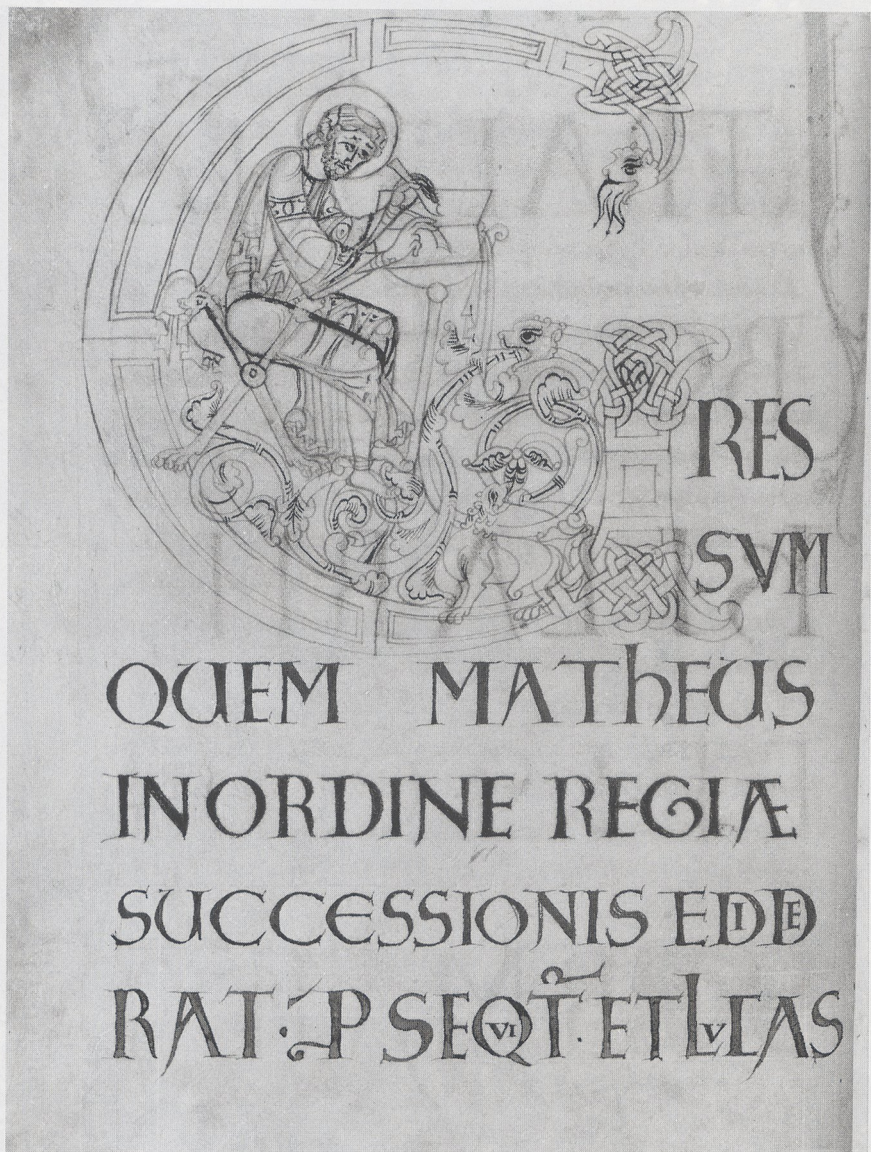 GRES
SVM
QUEM MAThEUS
IN ORDINE REGIÆ
SUCCESSIONIS EDIDE
RAT · ꝒSEQVIT᷑ · ET LVCAS